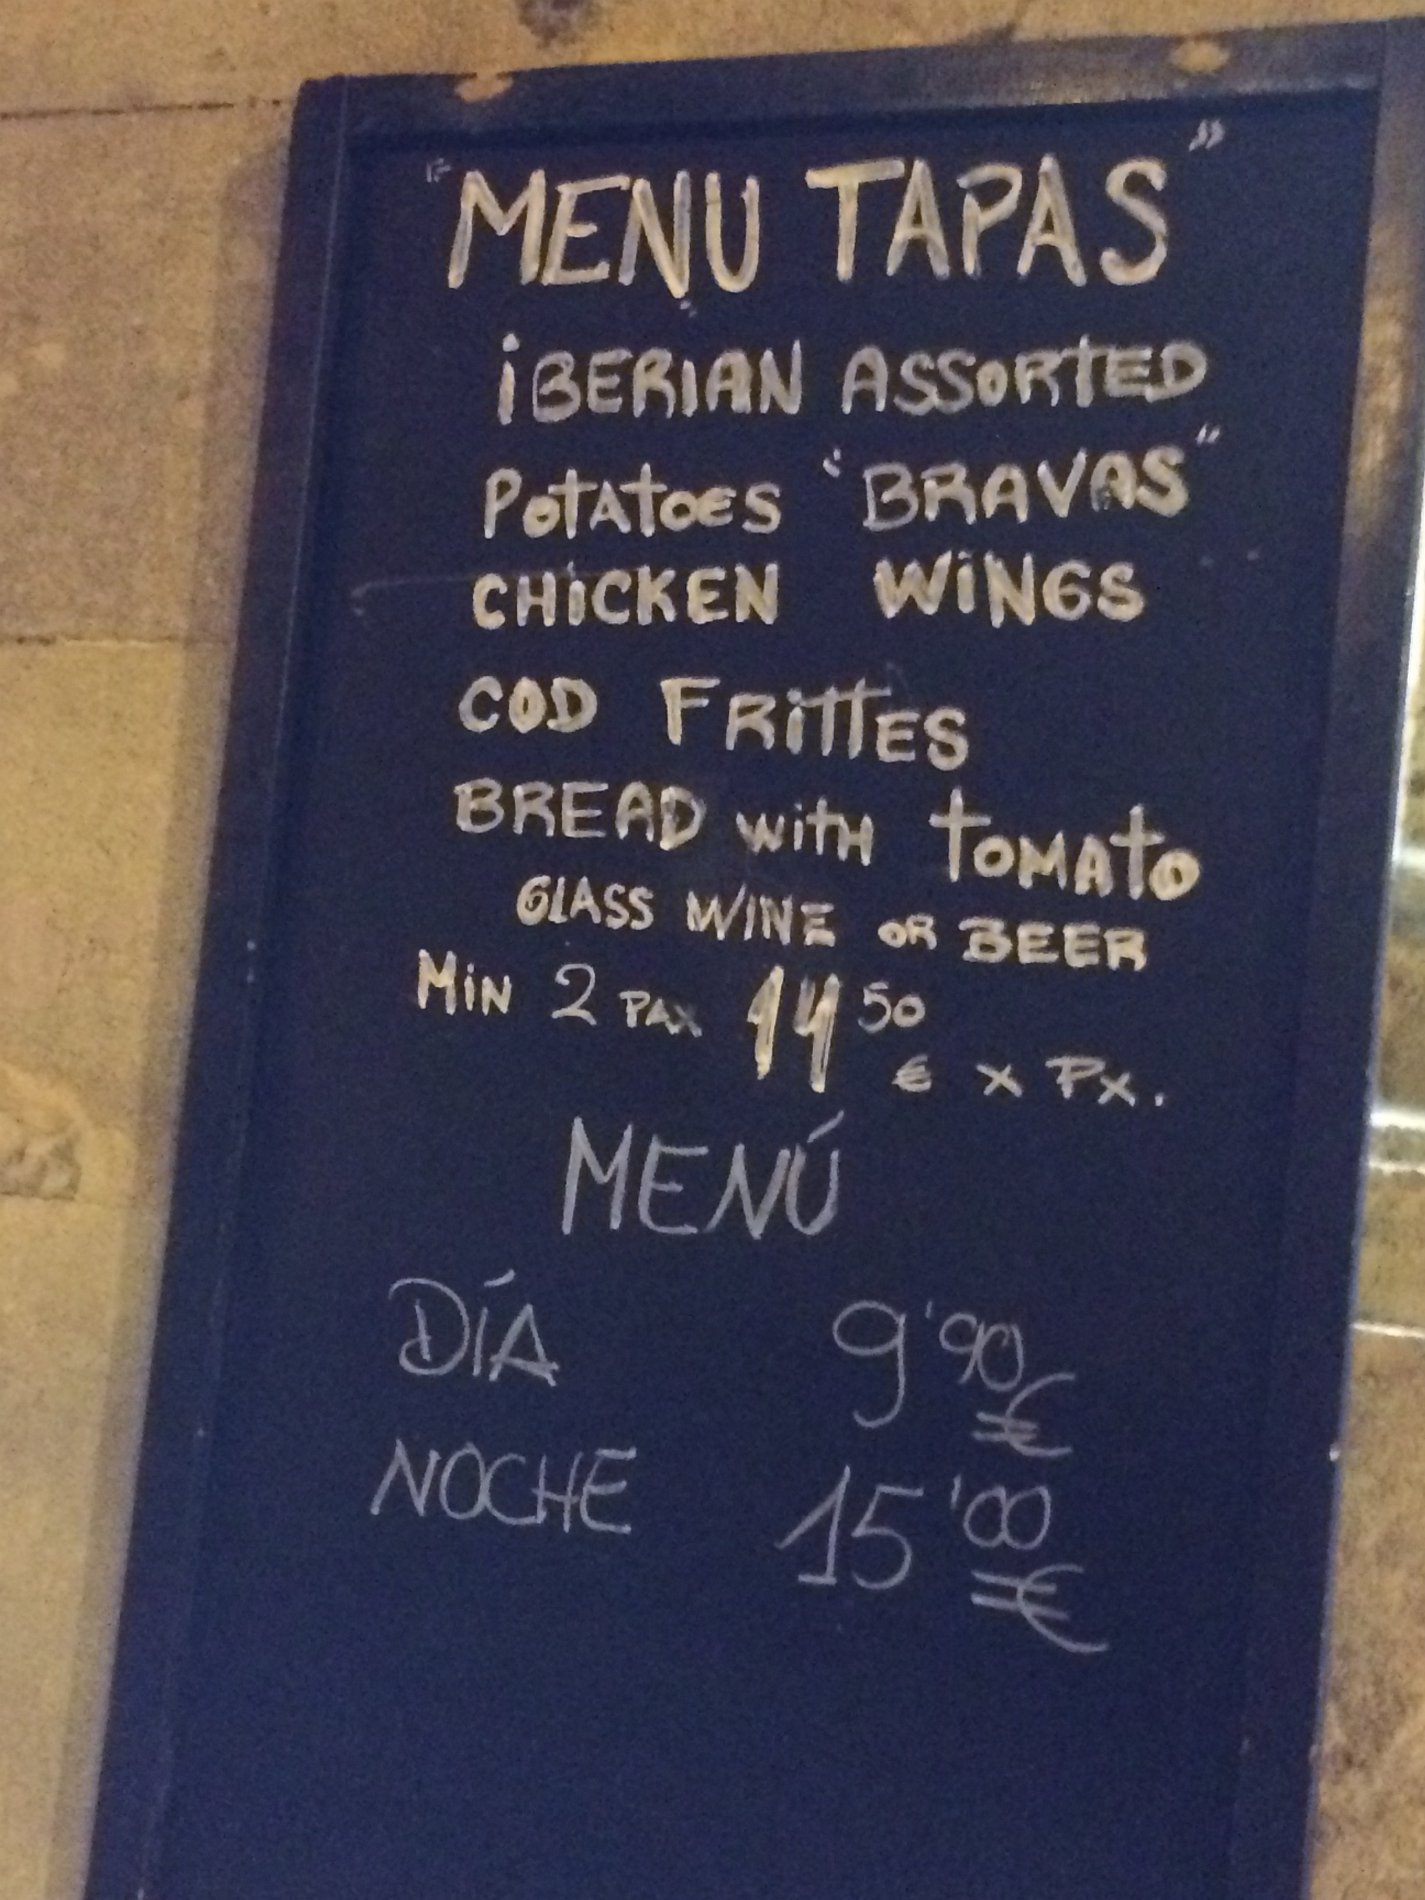 "MENU TAPAS"
iBERIAN ASSORTED
POTATOES "BRAVAS"
CHiCKEN WiNGS
COD FRiTTES
BREAD WiTH TOMATO
GLASS WINE OR BEER
MiN 2 PAX 14 50
€ x Px.
MENÚ
DÍA 9'90 €
NOCHE 15'00 €